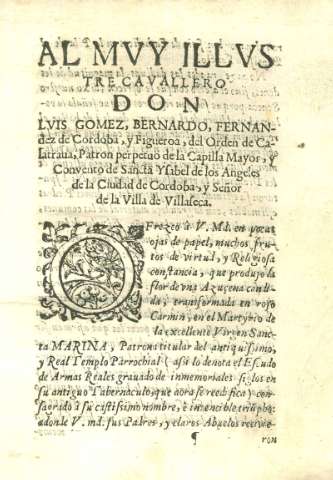 AL MVY ILLVS
TRE CAVALLERO
DON
LVIS GOMEZ, BERNARDO, FERNAN
dez de Cordoba, y Figueroa, del Orden de Ca-
latraua, Patron perpetuo de la Capilla Mayor, y
Convento de Sancta Ysabel de los Angeles
de la Ciudad de Cordoba, y Señor
de la Villa de Villaseca.
OFrezco à V. Md. en pocas
ojas de papel, muchos fru-
tos de virtud, y Religiosa
constancia, que produjo la
flor de vna Azuçena candi-
da; transformada en rojo
Carmin, en el Martyrio de
la excellente Virgen Sanc-
ta MARINA, Patrona titular del antiquissimo,
y Real Templo Parrochial (asi lo denota el Escudo
de Armas Reales grauado de inmemoriales siglos en
su antiguo Tabernaculo, que aora se reedifica y con-
sagrado à su nombre, è invencible
adonde V. md. sus Padres, y claros Abuelos
¶ ron